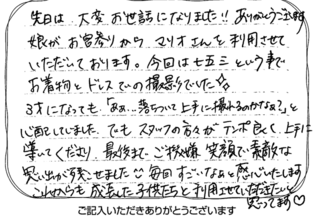 先日は大変お世話になりました!! ありがとうございます
娘がお宮参りからマリオさんを利用させて
いただいております。今回は七五三という事で
お着物とドレスでの撮影でした
3才になっても「あぁ…落ちついて上手に撮れるのかなぁ?」と
心配していました。でもスタッフの方々がテンポ良く、上手に
導いてくださり、最後までご機嫌、笑顔で素敵な
思い出が残せました 毎回すごいなぁと感心いたします
これからも成長した子供たちと利用させていただきたいと
思ってます♡
ご記入いただきありがとうございます